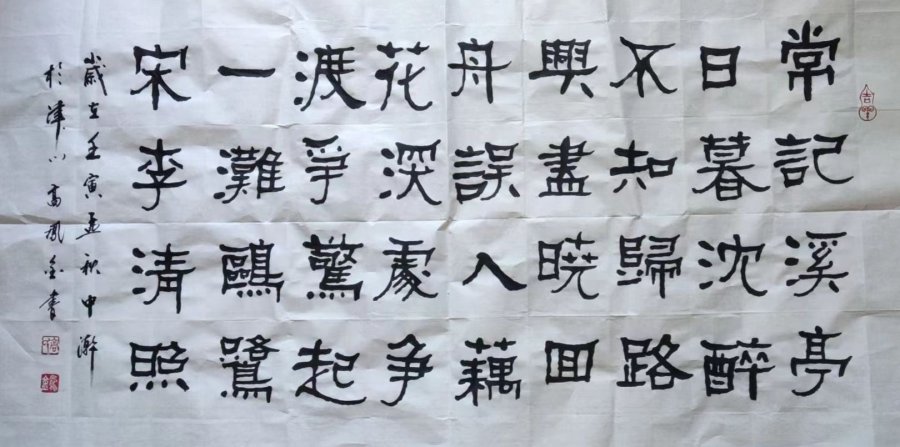 常記溪亭
日暮沈醉
不知歸路
興盡晓回
舟誤入藕
花深處争
渡爭驚起
一灘鷗鷺
宋李清照
歲在壬寅孟秋中澣
於津门高凤金書